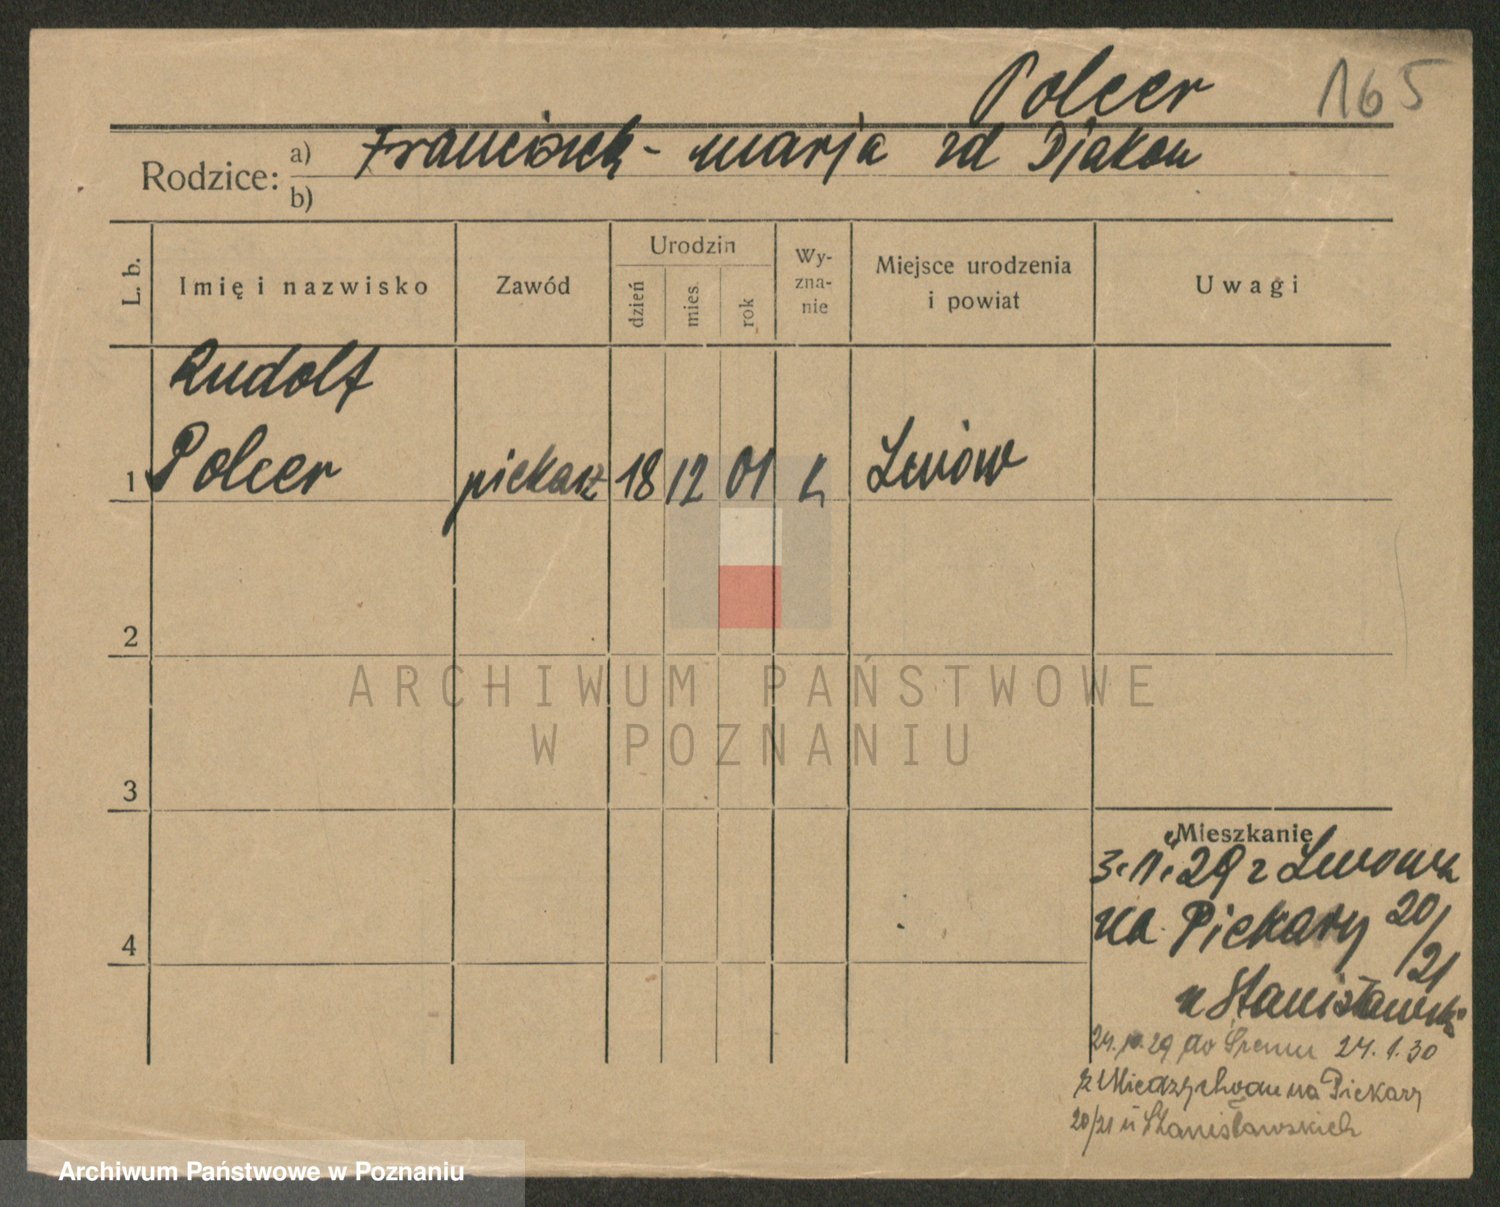 Polcer 165
Rodzice: a) Franciszek - Marja zd Djakon
b)
L. b.
Imię i nazwisko
Zawód
Urodzin
dzień
mies.
rok
Wy-
zna-
nie
Miejsce urodzenia
i powiat
Uwagi
Rudolf
1 Polcer piekarz 18 12 01 k Lwów
2
ARCHIWUM PAŃSTWOWE
W POZNANIU
3
Mieszkanie
3.1.29 z Lwowa
na Piekary 20/21
u Stanisławski
4
24. 29 do Śremu 24.1.30
z Międzychodu na Piekary
20/21 u Stanisławskich
Archiwum Państwowe w Poznaniu